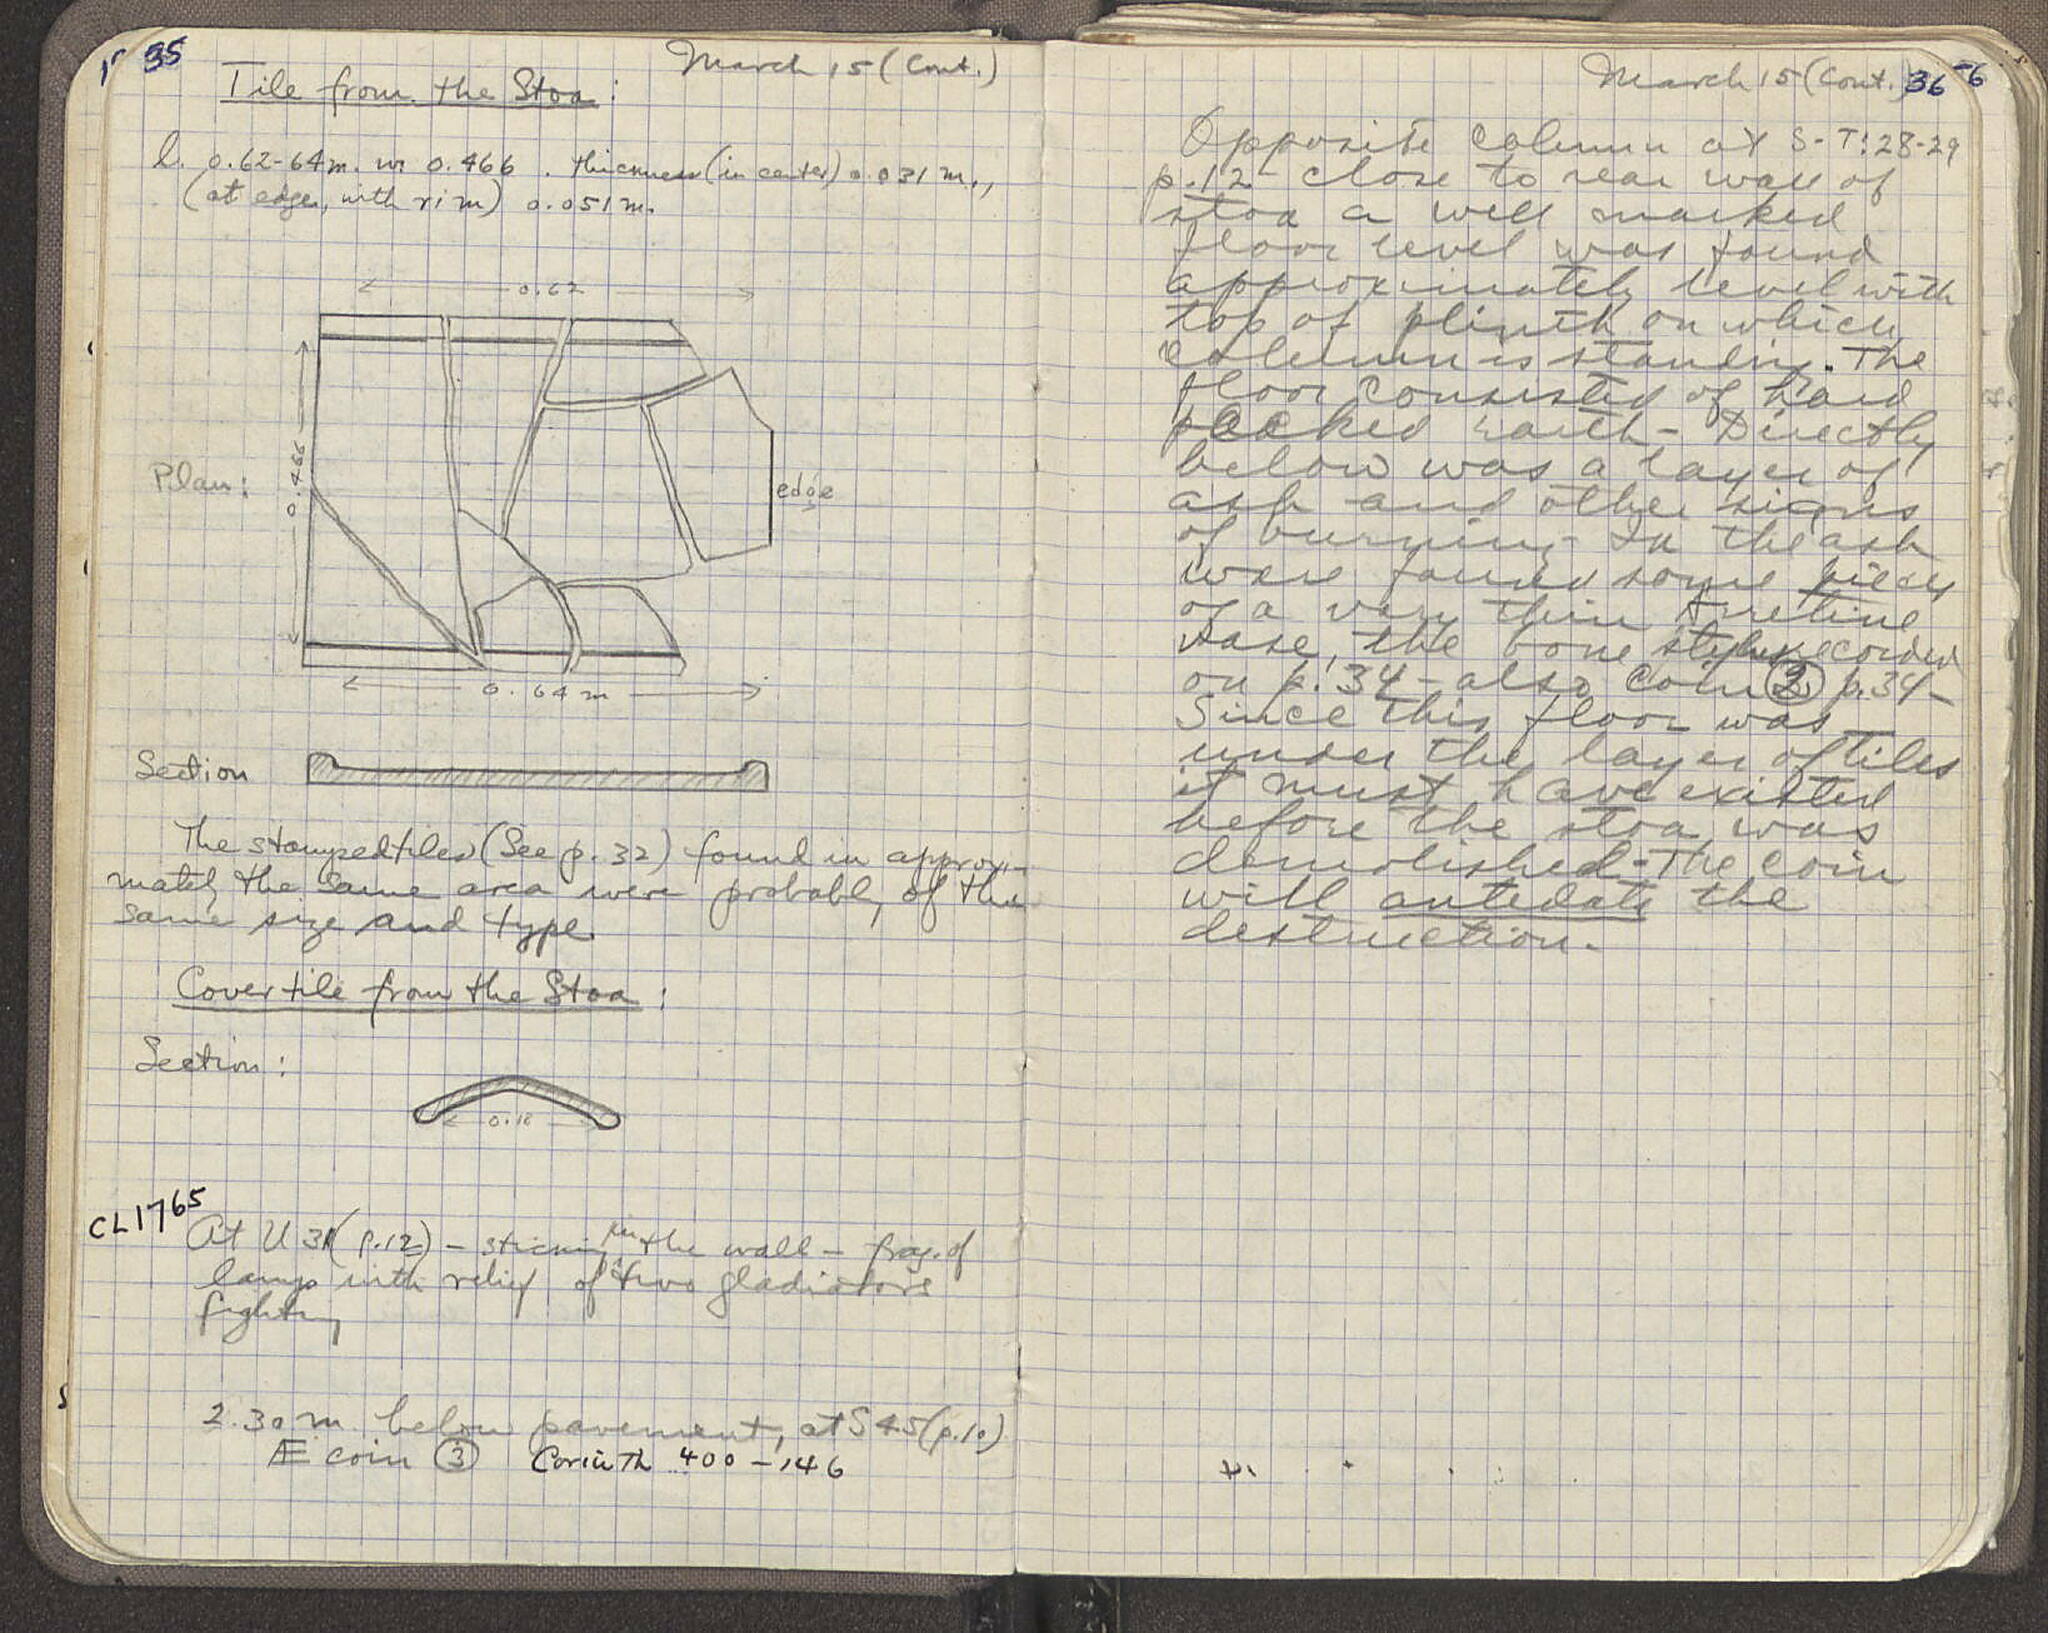 35
March 15 (Cont.)
Tile from the Stoa:
l. 0.62-64m. w. 0.466. thickness (in center) 0.031 m.,
(at edge, with rim) 0.051 m.
0.62
Plan:
0.466
edge
0.64 m
Section
The stamped tiles (See p. 32) found in approxi-
mately the same area were probably of this
same size and type.
Cover tile from the Stoa:
Section:
0.18
CL1765
At U 31 (p.12) - sticking in the wall - frag. of
lamp with relief of two gladiators
fighting
2.30 m. below pavement, at S 45 (p.10)
Æ coin ③ Corinth 400-146
March 15 (Cont.) 36
Opposite column at S-T:28-29
p.12 close to rear wall of
stoa a well marked
floor level was found
approximately level with
top of plinth on which
column is standing. The
floor consisted of hard
packed earth - Directly
below was a layer of
ash and other signs
of burning - In the ash
were found some pieces
of a very thin Arretine
vase, the bone stylus recorded
on p. 34 - also coin ② p.34 -
Since this floor was
under the layer of tiles
it must have existed
before the stoa was
demolished - The coin
will antedate the
destruction.